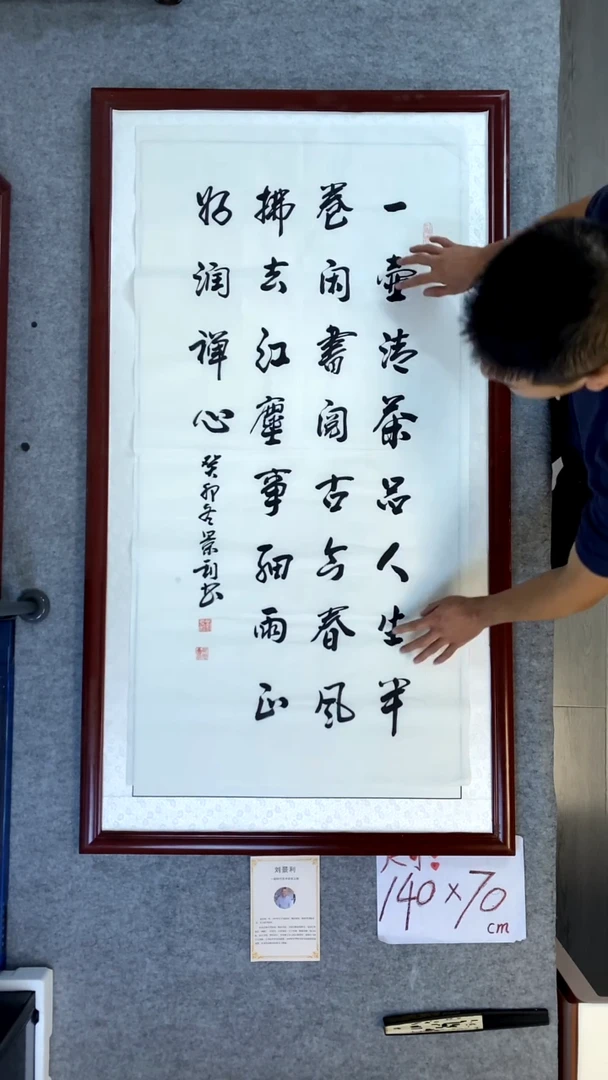 一壶清茶品人生半
卷闲书阅古今春风
拂去红尘事细雨正
好润禅心
癸卯冬景利书
刘景利
尺寸:
140×70
cm